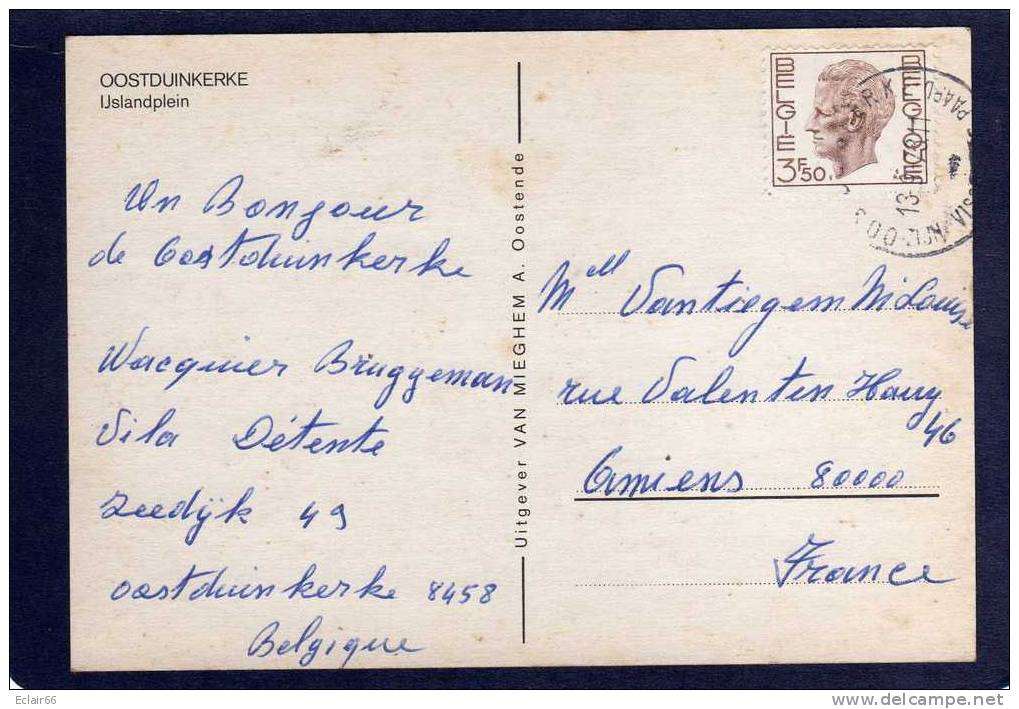 OOSTDUINKERKE
IJslandplein
Un Bonjour
de Oostduinkerke
Wacquier Bruggeman
Vila Détente
Zeedijk 49
Oostduinkerke 8458
Belgique
Uitgever VAN MIEGHEM A. Oostende
BELGIE
BELGIQUE
3F50
Mell Vantiegem M Louise
rue Valentin Hauy
46
Amiens 80000
France
Eclair66
delcampe.net